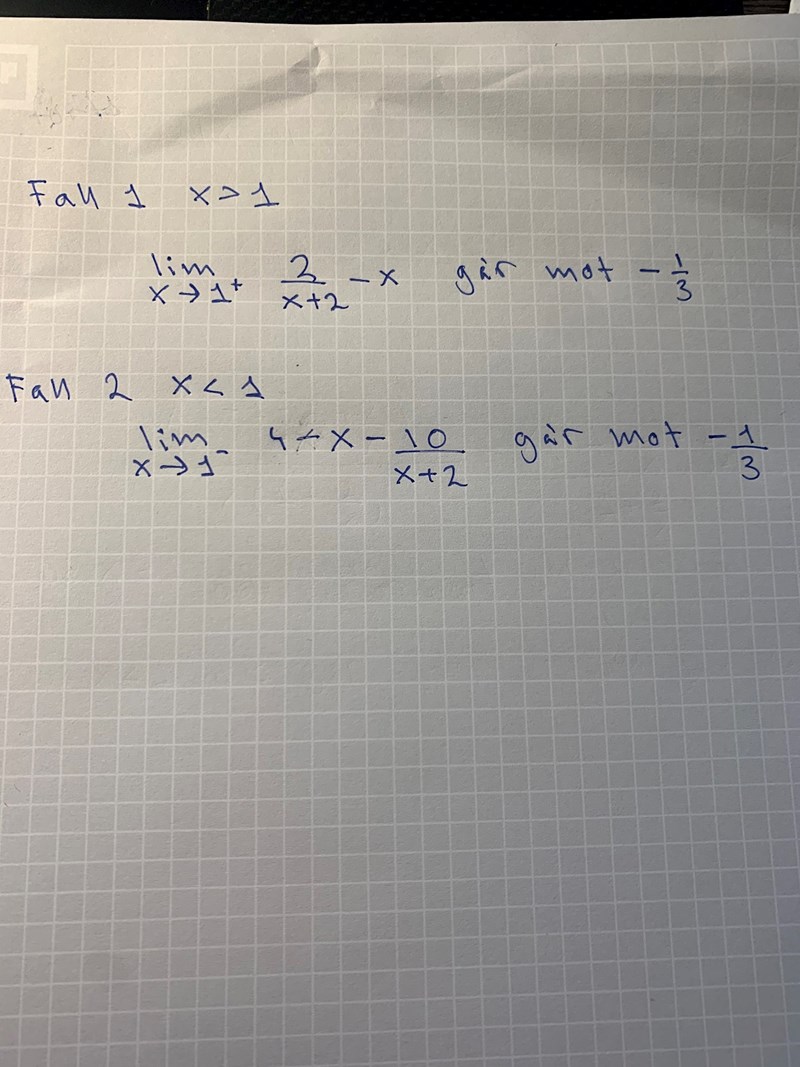 Fall 1 x > 1
lim x→1⁺ 2/(x+2) - x går mot -1/3
Fall 2 x < 1
lim x→1⁻ 4 - x - 10/(x+2) går mot -1/3